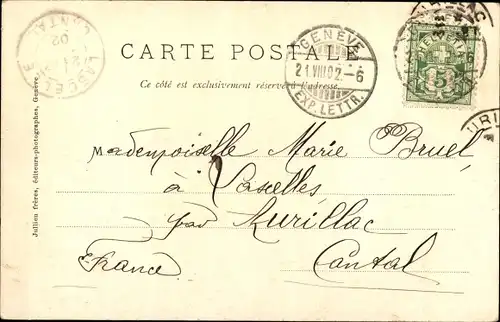 CARTE POSTALE
Ce côté est exclusivement réservé à l'adresse.
GENÈVE
21.VIII.02.-6
EXP. LETTR.
LASCELLE
CANTAL
21
02
5
Mademoiselle Marie Bruel
à Lascelles
par Aurillac
Cantal
France
Jullien frères, éditeurs-photographes, Genève.